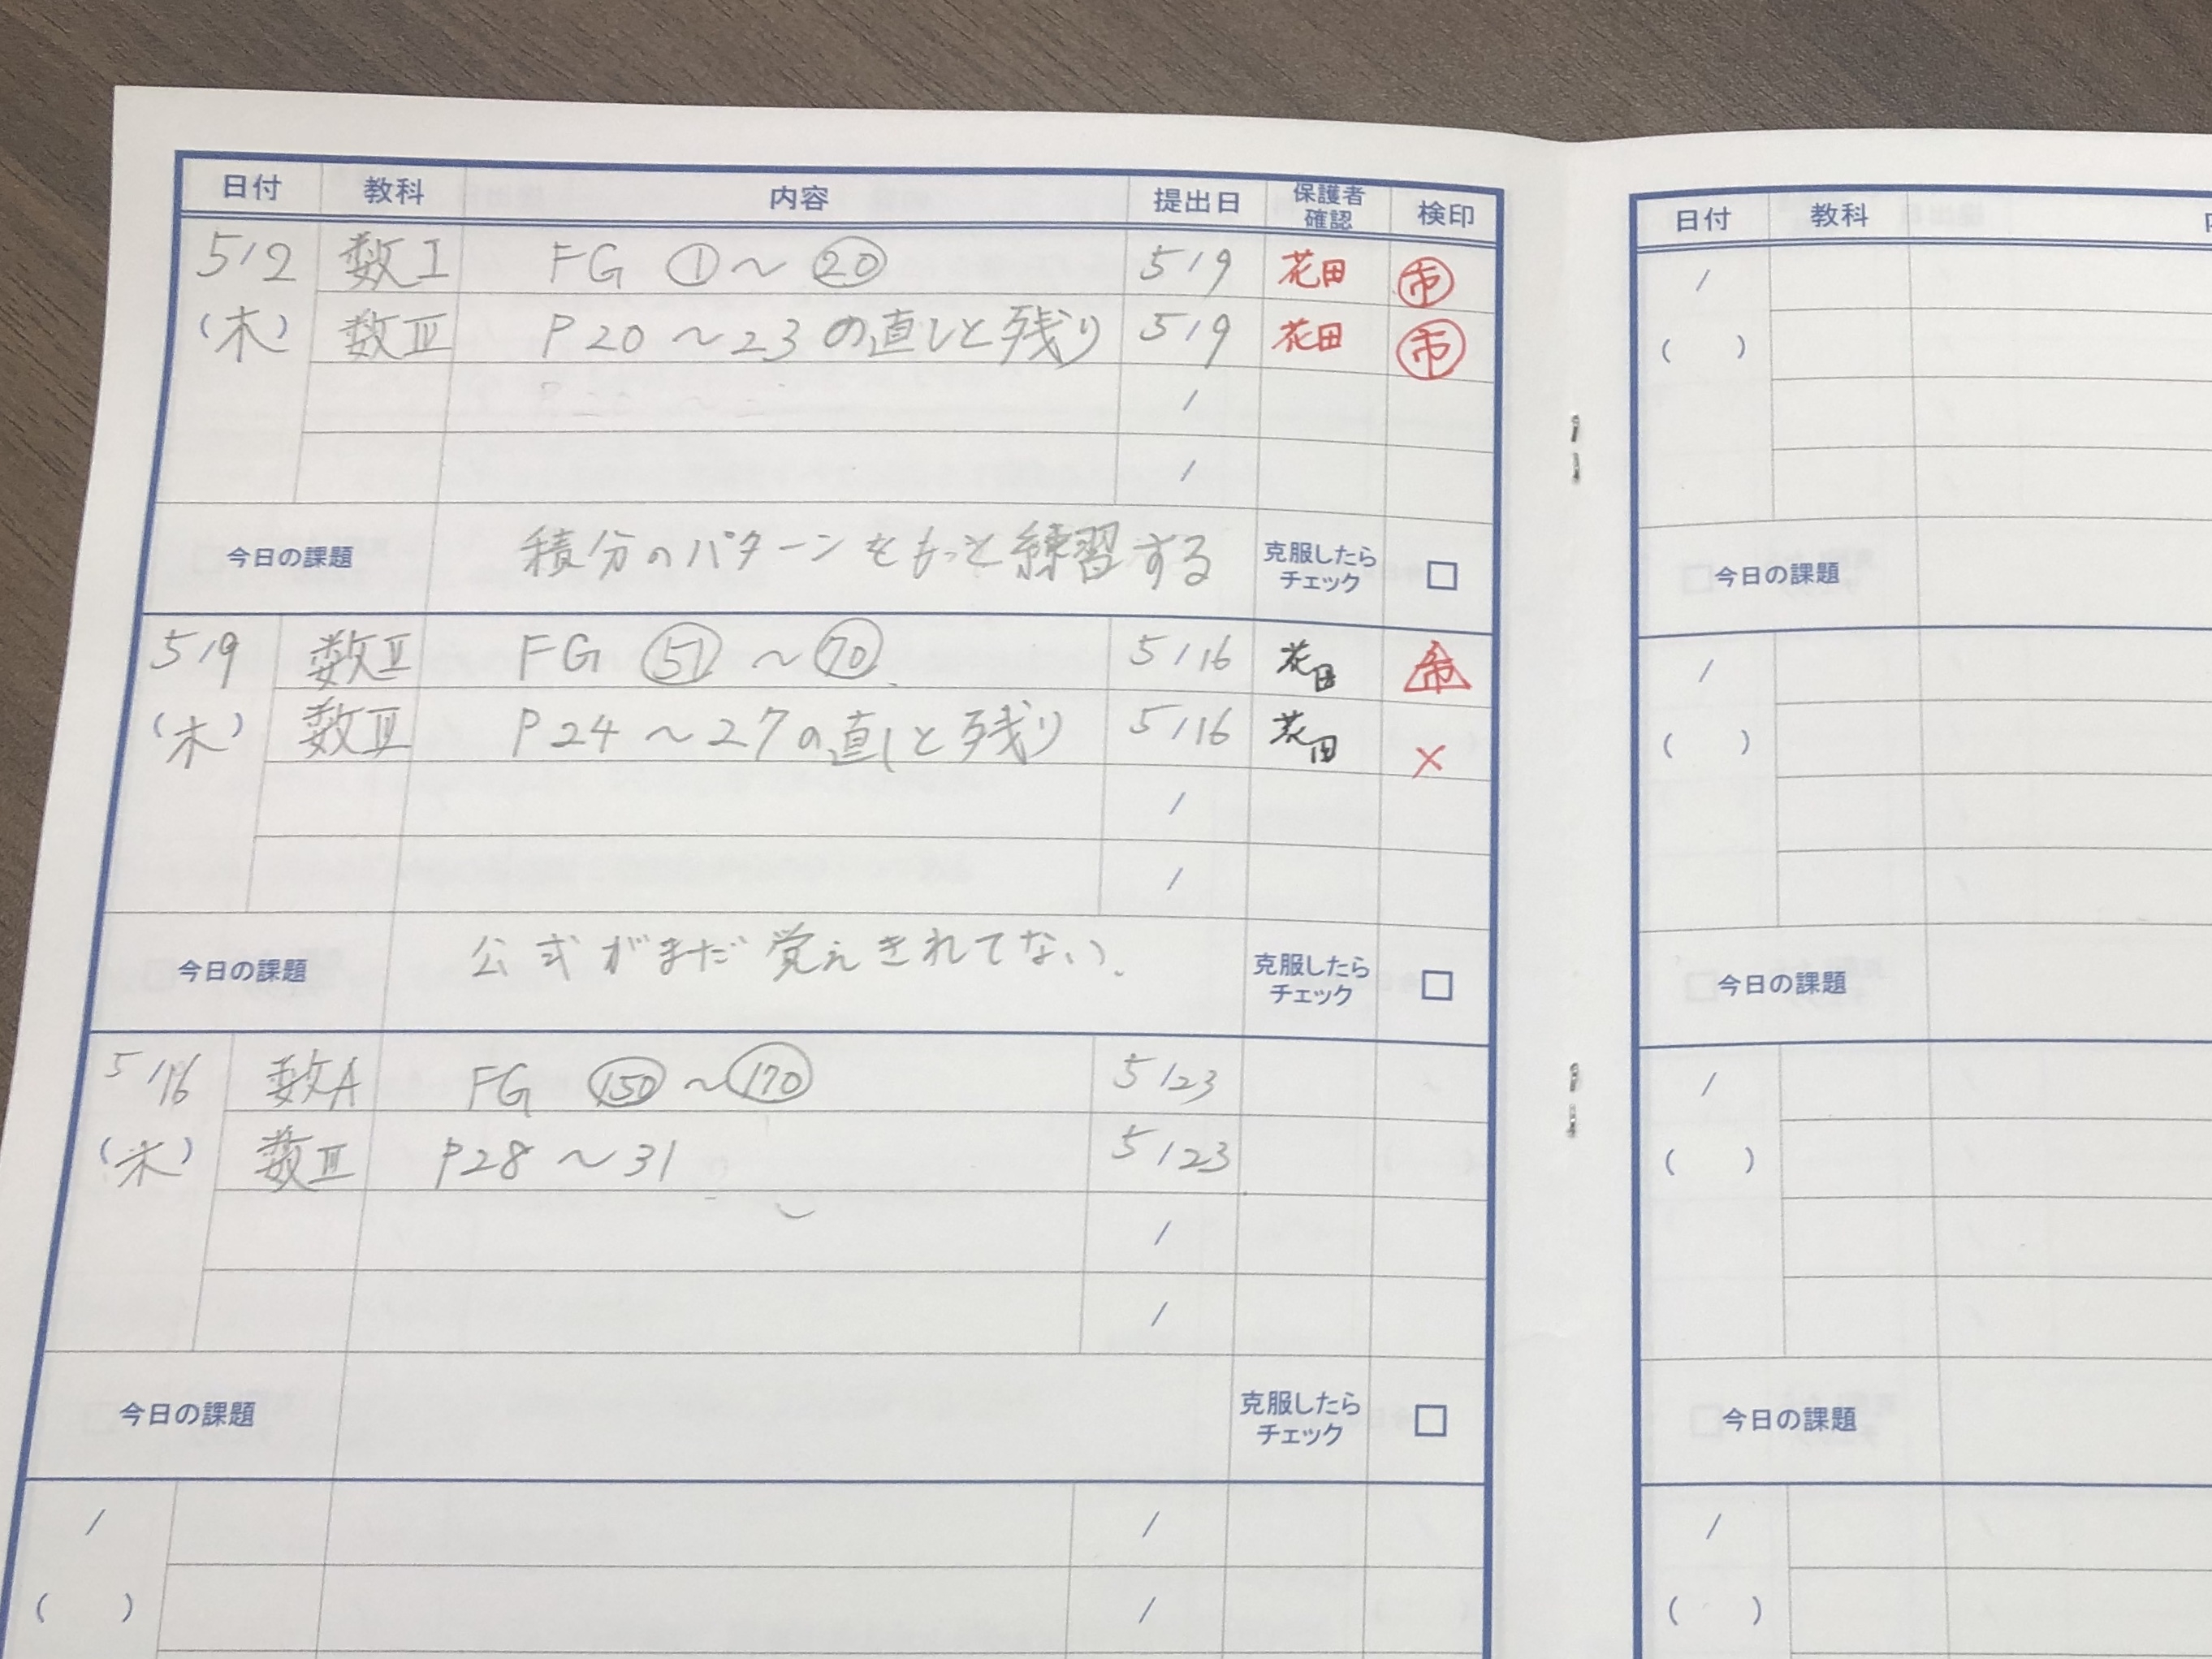 日付 教科 内容 提出日 保護者確認 検印
5/2 数I FG ①～⑳ 5/9 花田 市
(木) 数III P20～23の直しと残り 5/9 花田 市
/
/
今日の課題 積分のパターンをもっと練習する 克服したらチェック □
5/9 数II FG 51～70 5/16 花田 市
(木) 数III P24～27の直しと残り 5/16 花田 ×
/
/
今日の課題 公式がまだ覚えきれてない。 克服したらチェック □
5/16 数A FG 150～170 5/23
(木) 数III P28～31 5/23
/
/
今日の課題 克服したらチェック □
/ /
( ) /
日付 教科
/
( )
今日の課題
/
( )
今日の課題
/
( )
今日の課題
/
( )